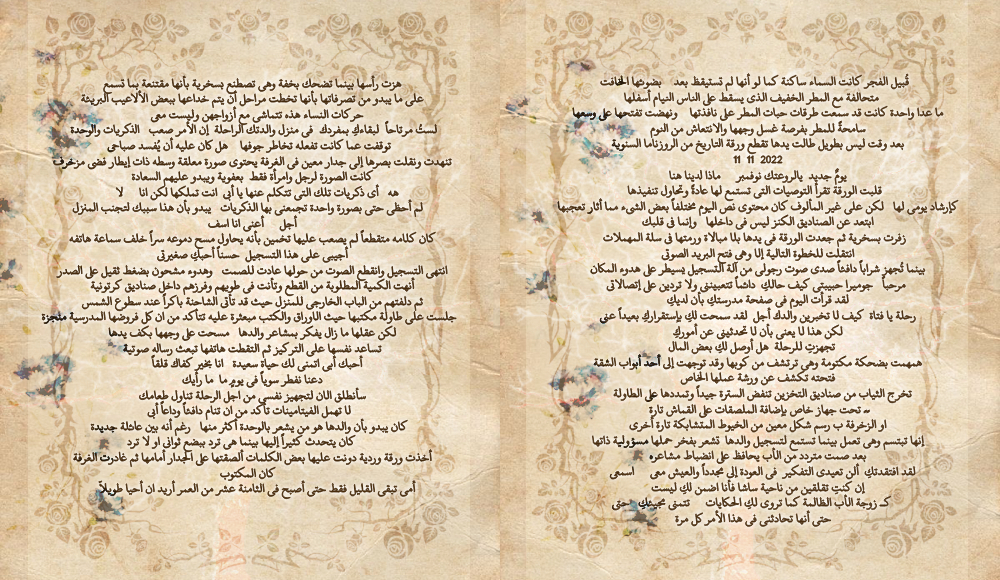 قُبيل الفجر كانت السماء ساكنة كما لو أنها لم تستيقظ بعد بضوئها الخافت
متحالفة مع المطر الخفيف الذى يسقط على الناس النيام أسفلها
ما عدا واحدة كانت قد سمعت طرقات حبات المطر على نافذتها ونهضت تفتحها على وسعها
سامحةً للمطر بفرصة غسل وجهها والانتعاش من النوم
بعد وقت ليس بطويل طالت يدها تقطع ورقة التاريخ من الروزناما السنوية
11 11 2022
يومٌ جديد يالروعتك نوفمبر ماذا لدينا هنا
قلبت الورقة تقرأ التوصيات التى تستمع لها عادةً وتحاول تنفيذها
كإرشاد يومى لها لكن على غير المألوف كان محتوى نص اليوم مختلفاً بعض الشىء مما أثار تعجبها
ابتعد عن الصناديق الكنز ليس فى داخلها وإنما فى قلبك
زفرت بسخرية ثم جعدت الورقة فى يدها بلا مبالاة ورمتها فى سلة المهملات
انتقلت للخطوة التالية إلا وهى فتح البريد الصوتى
بينما تُجهز شراباً دافئاً صدى صوت رجولى من آلة التسجيل يسيطر على هدوء المكان
مرحباً جوميرا حبيبتى كيف حالكِ داشاً تتعبينى ولا تردين على إتصالاتى
لقد قرأت اليوم فى صفحة مدرستكِ بأن لديكِ
رحلة يا فتاة كيف لا تخبرين والدك أجل لقد سمحت لكِ بإستقراركِ بعيداً عنى
لكن هذا لا يعنى بأن لا تحدثينى عن أموركِ
تجهزتِ للرحلة هل أوصل لكِ بعض المال
همهمت بضحكة مكتومة وهى ترتشف من كوبها وقد توجهت إلى أحد أبواب الشقة
فتحته تكشف عن ورشة عملها الخاص
تخرج الثياب من صناديق التخزين تنفض السترة جيداً وتمددها على الطاولة
تحت جهاز خاص بإضافة الملصقات على القماش تارة
او الزخرفة ب رسم شكل معين من الخيوط المتشابكة تارة أخرى
إنها تبتسم وهى تعمل بينما تستمع لتسجيل والدها تشعر بفخر حملها مسؤولية ذاتها
بعد صمت متردد من الأب يحافظ على انضباط مشاعره
لقد افتقدتكِ ألن تعيدى التفكير فى العودة إلى مجدداً والعيش معى اسمعى
إن كنتِ تقلقين من ناحية ساشا فأنا اضمن لكِ ليست
كـ زوجة الأب الظالمة كما تروى لكِ الحكايات تتمنى مجيئك حتى
حتى أنها تحادثنى فى هذا الأمر كل مرة
هزت رأسها بينما تضحك بخفة وهى تصطنع بسخرية بأنها مقتنعة بما تسمع
على ما يبدو من تصرفاتها بأنها تخطت مراحل أن يتم خداعها ببعض الألاعيب البريئة
حركات النساء هذه تتماشى مع أزواجهن وليست معى
لستُ مرتاحاً لبقاءكِ بمفردكِ فى منزل والدتكِ الراحلة إن الأمر صعب الذكريات والوحدة
توقفت عما كانت تفعله تخاطر جوفها هل كان عليه أن يُفسد صباحى
تنهدت ونقلت بصرها إلى جدار معين فى الغرفة يحتوى صورة معلقة وسطه ذات إيطار فضى مزخرف
كانت الصورة لرجل وامرأة فقط بعفوية ويبدو عليهم السعادة
هه أى ذكريات تلك التى تتكلم عنها يا أبى انت تسلكها لكن انا لا
لم أحظى حتى بصورة واحدة تجمعنى بها الذكريات يبدو بأن هذا سبيك لتجنب المنزل
أجل أعنى انا اسف
كان كلامه متقطعاً لم يصعب عليها تخمين بأنه يحاول مسح دموعه سراً خلف سماعة هاتفه
أجيبى على هذا التسجيل حسناً أحبكِ صغيرتى
انتهى التسجيل وانقطع الصوت من حولها عادت للصمت وهدوء مشحون بضغط ثقيل على الصدر
أنهت الكمية المطلوبة من القطع وتأنت فى طويهم وفرزهم داخل صناديق كرتونية
ثم دلفتهم من الباب الخارجى للمنزل حيث قد تأتى الشاحنة باكراً عند سطوع الشمس
جلست على طاولة مكتبها حيث الاوراق والكتب مبعثرة عليه تتأكد من ان كل فروضها المدرسية منجزة
لكن عقلها ما زال يفكر بمشاعر والدها مسحت على وجهها بكف يدها
تساعد نفسها على التركيز ثم التقطت هاتفها تبعث رساله صوتية
أحبك أبى اتمنى لك حياة سعيدة انا بخير كفاك قلقاً
دعنا نفطر سوياً فى يومٍ ما ما رأيك
سأنطلق الان لتجهيز نفسى من اجل الرحلة تناول طعامك
لا تهمل الفيتامينات تأكد من ان تنام دافئاً وداعاً أبى
كان يبدو بأن والدها هو من يشعر بالوحدة أكثر منها رغم أنه بين عائلة جديدة
كان يتحدث كثيراً إليها بينما هى ترد ببضع ثوانى او لا ترد
أخذت ورقة وردية دونت عليها بعض الكلمات ألصقتها على الجدار أمامها ثم غادرت الغرفة
كان المكتوب
أمى تبقى القليل فقط حتى أصبح فى الثامنة عشر من العمر أريد ان أحيا طويلاً